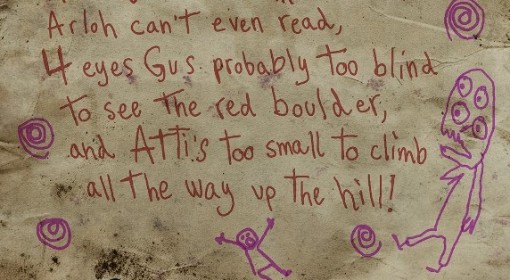 Arloh can't even read,
4 eyes Gus probably too blind
to see the red boulder,
and Atti's too small to climb
all the way up the hill!